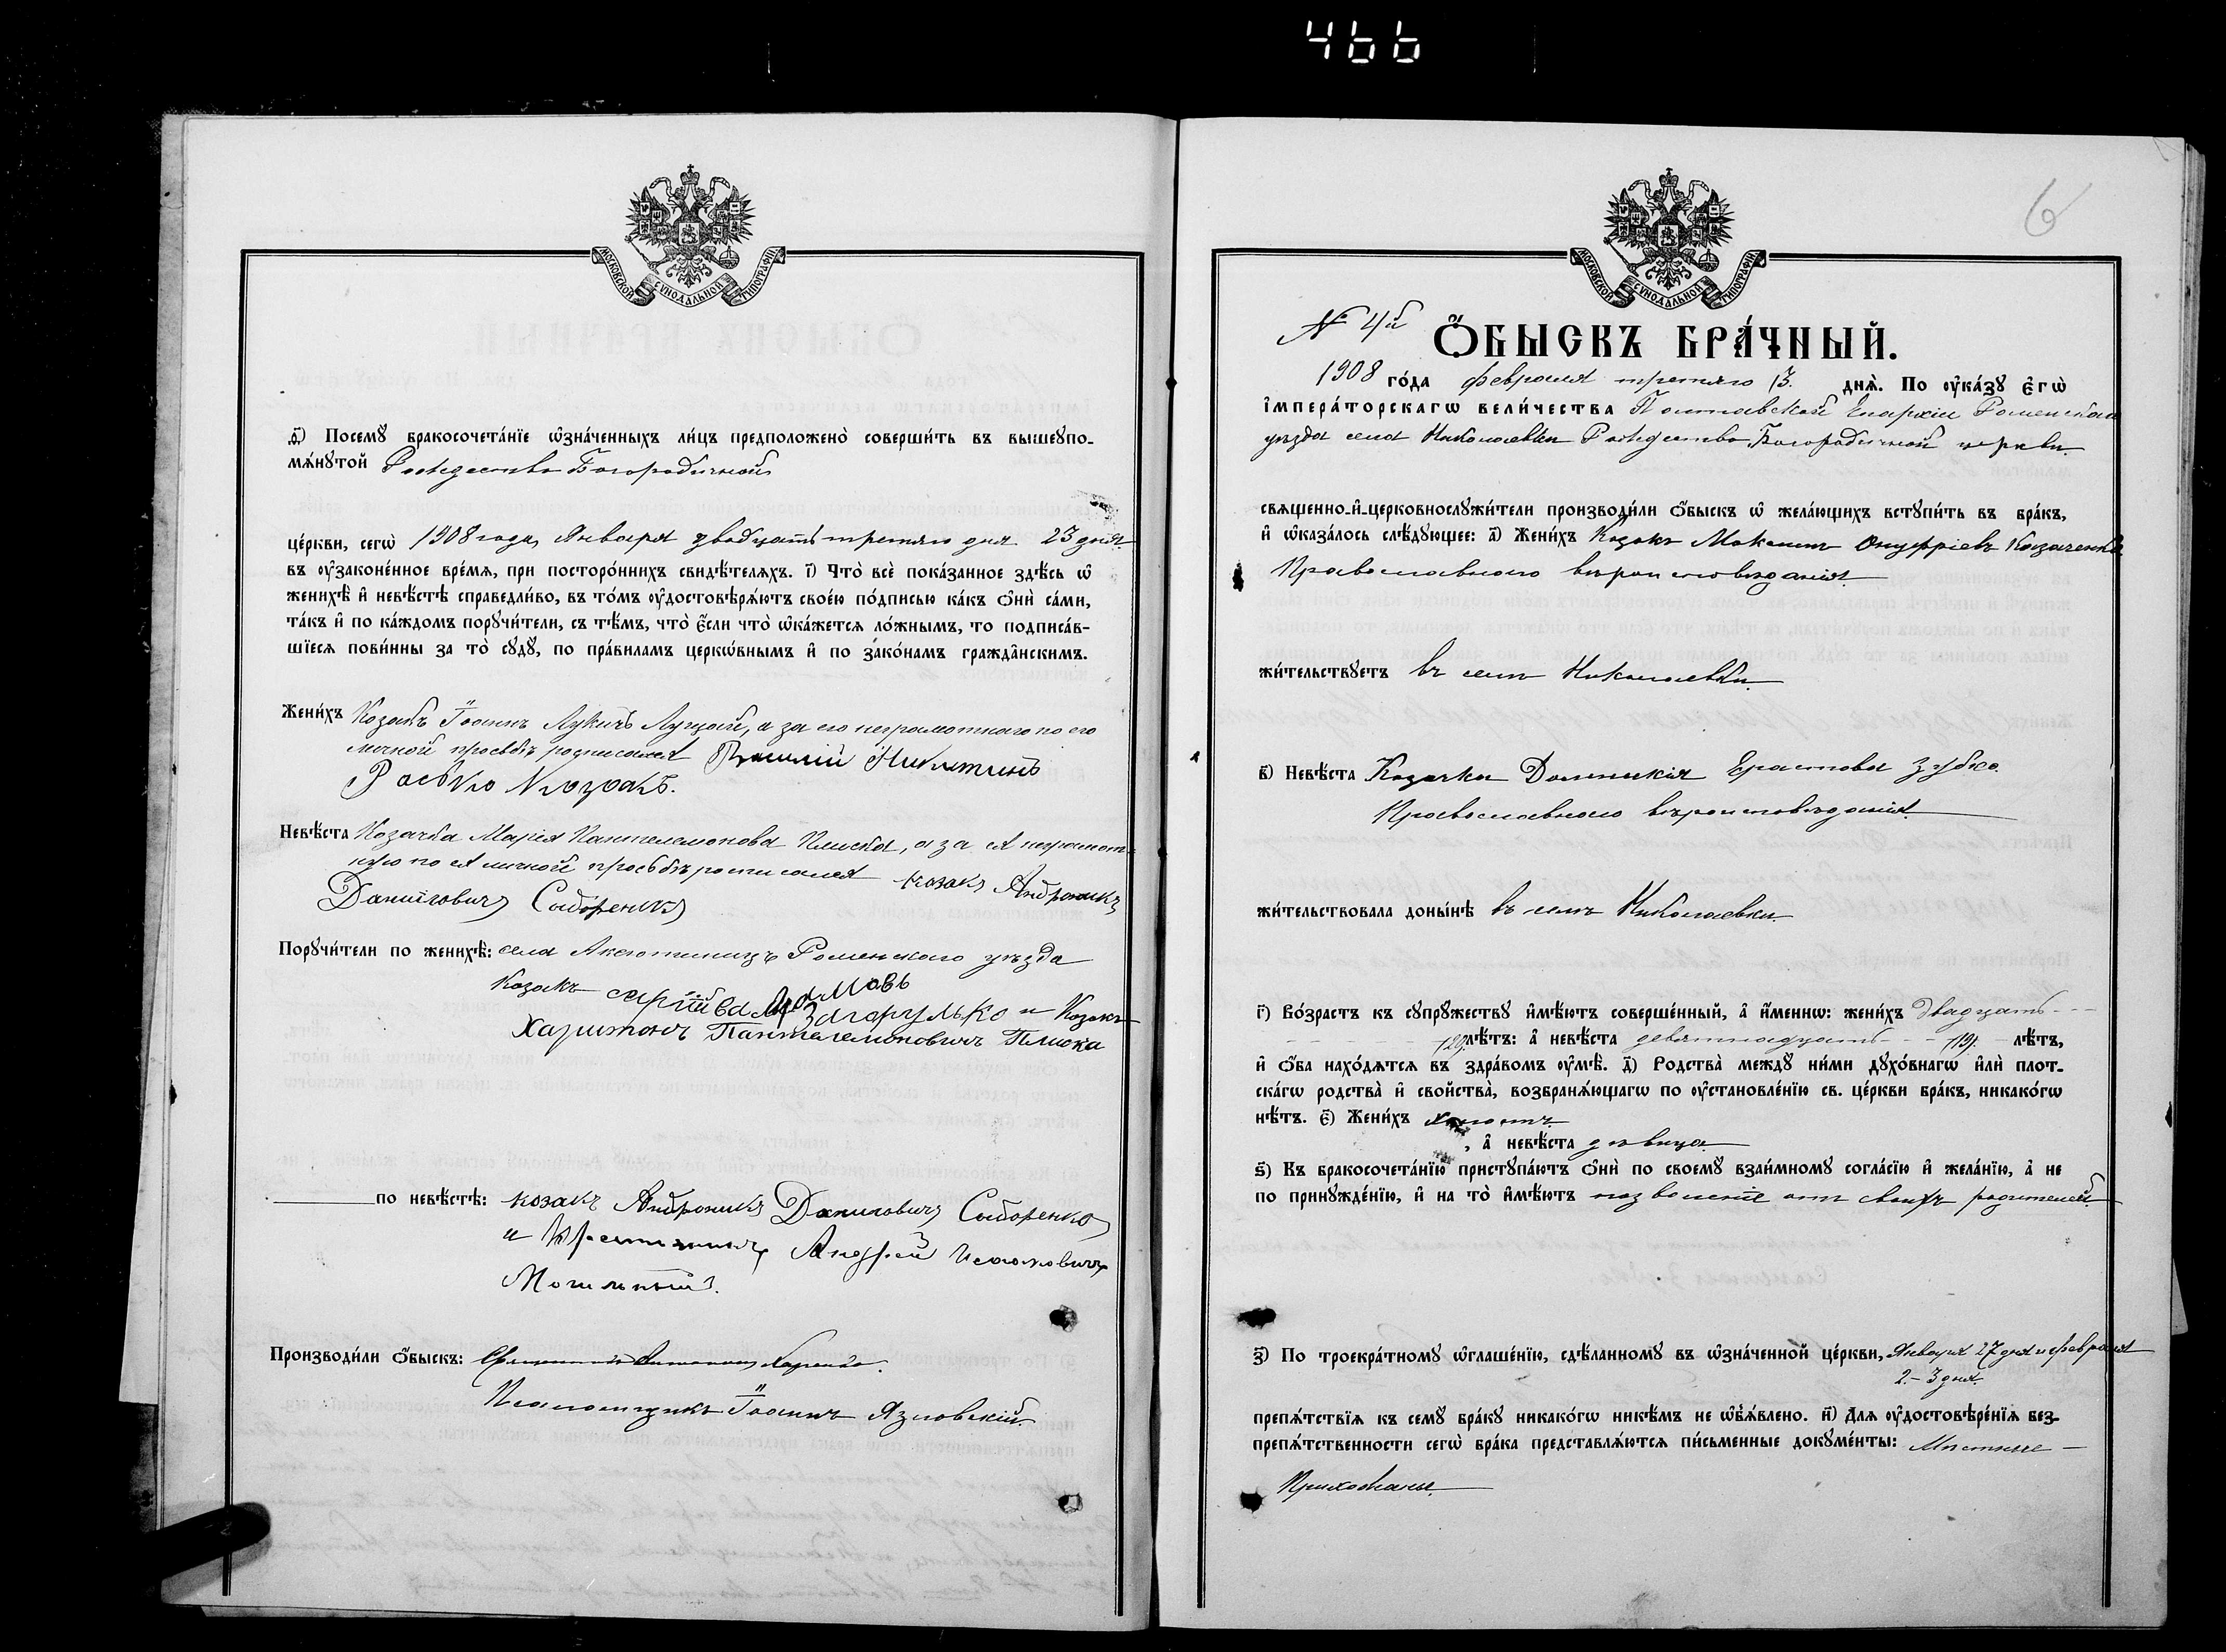 466
МОСКОВСКОЙ СѴНОДАЛЬНОЙ ТИПОГРАФІИ
ѳ҃) Посемꙋ бракосочета́нїе ѡ҆зна́ченныхъ ли́цъ предположено̀ соверши́ть въ вышеꙋпо-
мѧ́нꙋтой Рождество Богородичной
це́ркви, сегѡ̀ 1908 года, Января двадцать третьяго дня 23 дня
въ ᲂу҆законе́нное вре́мѧ, при посторо́ннихъ свидѣ́телѧхъ. і҃) Что̀ всѐ пока́занное здѣ́сь ѡ҆
женихѣ̀ и҆ невѣ́стѣ справедли́во, въ то́мъ ᲂу҆достовѣрѧ́ютъ свое́ю по́дписью ка́къ ѻ҆нѝ са́ми,
та́къ и҆ по ка́ждомъ порꙋчи́тели, съ тѣ́мъ, что̀ є҆́сли что̀ ѡ҆ка́жетсѧ ло́жнымъ, то подписа́в-
шїесѧ пови́нны за то̀ сꙋдꙋ̀, по пра́виламъ церкѡ́внымъ и҆ по зако́намъ гражда̂нскимъ.
Жени́хъ Козакъ Іоаннъ Лукичъ Луцай, а за его неграмотнаго по его
личной просьбѣ росписался Василій Никитинъ
Козакъ.
Невѣ́ста Козачка Марія Пантелемонова Плиска, а за ея неграмот-
ную по ея личной просьбѣ росписался козакъ Андроникъ
Даниловичъ Сидоренко
Порꙋчи́тели по женихѣ̀: села Аксютинецъ Роменскаго уѣзда
Козакъ Загорулько и Козакъ
Харитонъ Пантелемоновичъ Плиска
по невѣ́стѣ: козакъ Андроникъ Даниловичъ Сидоренко
и Андрей Исааковичъ
Могильный.
Производи́ли ѻ҆́быскъ: Священникъ
Псаломщикъ Іоаннъ Язловскій
6
МОСКОВСКОЙ СѴНОДАЛЬНОЙ ТИПОГРАФІИ
№ 4й
Ѻ҆́БЫСКЪ БРА́ЧНЫЙ.
1908 го́да февраля третяго /3. днѧ̀. По ᲂу҆ка́зꙋ є҆гѡ̀
і҆мпера́торскагѡ вели́чества Полтавской Епархіи Роменскаго
уѣзда села Николаевки Рождество Богородичной церкви
свѧщенно-и҆-церковнослꙋжи́тели производи́ли ѻ҆́быскъ ѡ҆ жела́ющихъ встꙋпи́ть въ бра́къ,
и҆ ѡ҆каза́лось слѣ́дꙋющее: а҃) Жени́хъ Козакъ Максимъ Онуфріевъ Казаченко
Православнаго вѣроисповѣданія
жи́тельствꙋетъ въ селѣ Николаевки.
в҃) Невѣ́ста Козачка Домникія Ерастова Зубко.
Православнаго вѣроисповѣданія
жи́тельствовала доны́нѣ въ селѣ Николаевки
г҃) Во́зрастъ къ сꙋпрꙋ́жествꙋ и҆мѣ́ютъ соверше́нный, а҆ и҆́меннѡ: жени́хъ двадцать
/20/. лѣ́тъ: а҆ невѣ́ста девятнадцать /19/. лѣ́тъ,
и҆ ѻ҆́ба нахо́дѧтсѧ въ здра́вомъ ᲂу҆мѣ̀. д҃) Родства̀ междꙋ̀ ни́ми дꙋхо́внагѡ и҆лѝ плот-
ска́гѡ родства̀ и҆ свойства̀, возбранѧ́ющагѡ по ᲂу҆становле́нїю св. це́ркви бра́къ, никако́гѡ
нѣ́тъ. є҃) Жени́хъ холостъ
, а҆ невѣ́ста дѣвица
ѕ҃) Къ бракосочета́нїю пристꙋпа́ютъ ѻ҆нѝ по своемꙋ̀ взаи́мномꙋ согла́сїю и҆ жела́нїю, а҆ не
по принꙋжде́нїю, и҆ на то̀ и҆мѣ́ютъ позволеніе отъ своихъ родителей.
з҃) По троекра́тномꙋ ѡ҆глаше́нїю, сдѣ́ланномꙋ въ ѡ҆зна́ченной це́ркви, Января 27 дня и февраля
2.- 3 дня.
препѧ́тствїѧ къ семꙋ̀ бра́кꙋ никако́гѡ никѣ́мъ не ѡ҆б̾ѧ́влено. и҃) Длѧ ᲂу҆достовѣре́нїѧ без-
препѧ́тственности сегѡ̀ бра́ка представлѧ́ютсѧ пи́сьменные докꙋме́нты: Мѣстные
Прихожане.